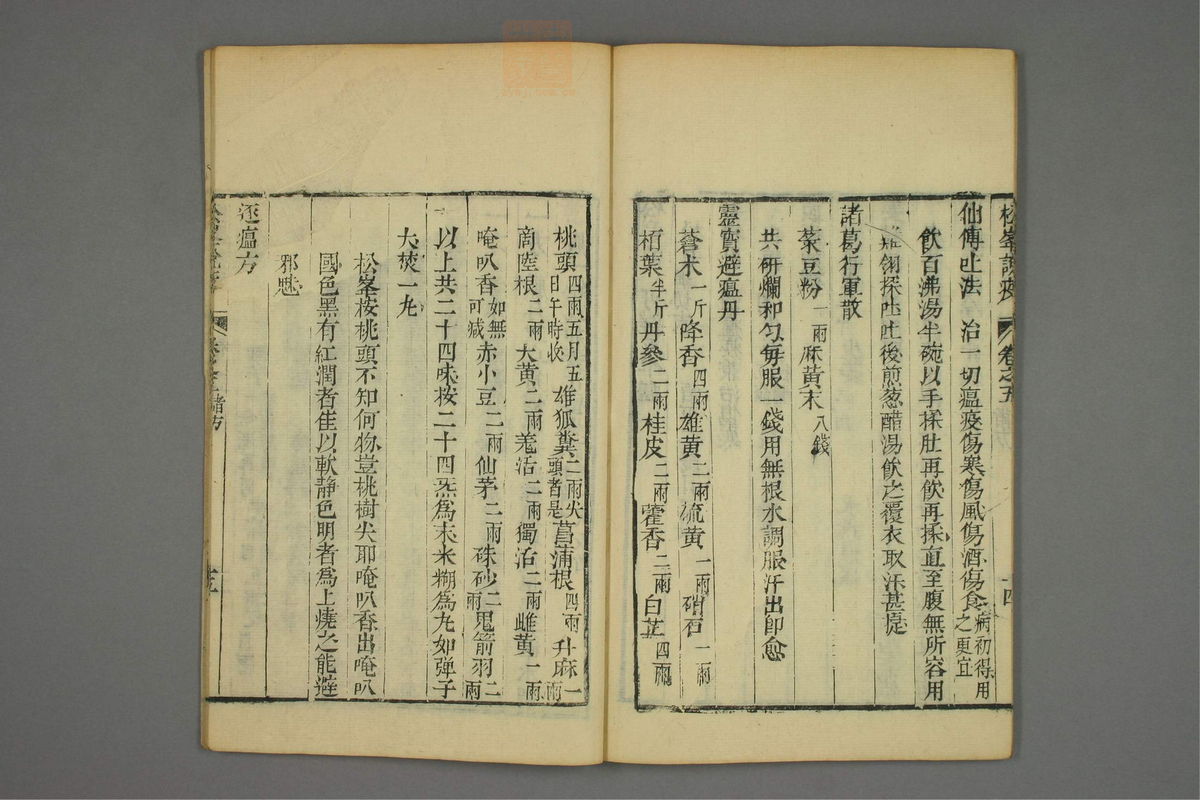 松峯說疫 卷之五 十四
仙傳吐法 治一切瘟疫傷寒傷風傷酒傷食病初得用之更宜
飲百沸湯半碗以手揉肚再飲再揉直至腹無所容用
雞翎探吐吐後煎葱醋湯飲之覆衣取汗甚捷
諸葛行軍散
菉豆粉一兩麻黃末八錢
共研爛和勻每服一錢用無根水調服汗出即愈
靈寶避瘟丹
蒼朮一斤降香四兩雄黃二兩硫黃一兩硝石一兩
栢葉半斤丹參二兩桂皮二兩藿香二兩白芷四兩
桃頭四兩五月五日午時收雄狐糞二兩尖頭者是菖蒲根四兩升麻一兩
商陸根二兩大黃二兩羌活二兩獨活二兩雌黃一兩
唵叭香如無可減赤小豆二兩仙茅二兩硃砂二兩鬼箭羽二兩
以上共二十四味按二十四炁為末米糊為丸如彈子
大焚一丸
松峯按桃頭不知何物豈桃樹尖耶唵叭香出唵叭
國色黑有紅潤者佳以軟静色明者為上燒之能避
邪魅
逐瘟方
卷之五 諸方